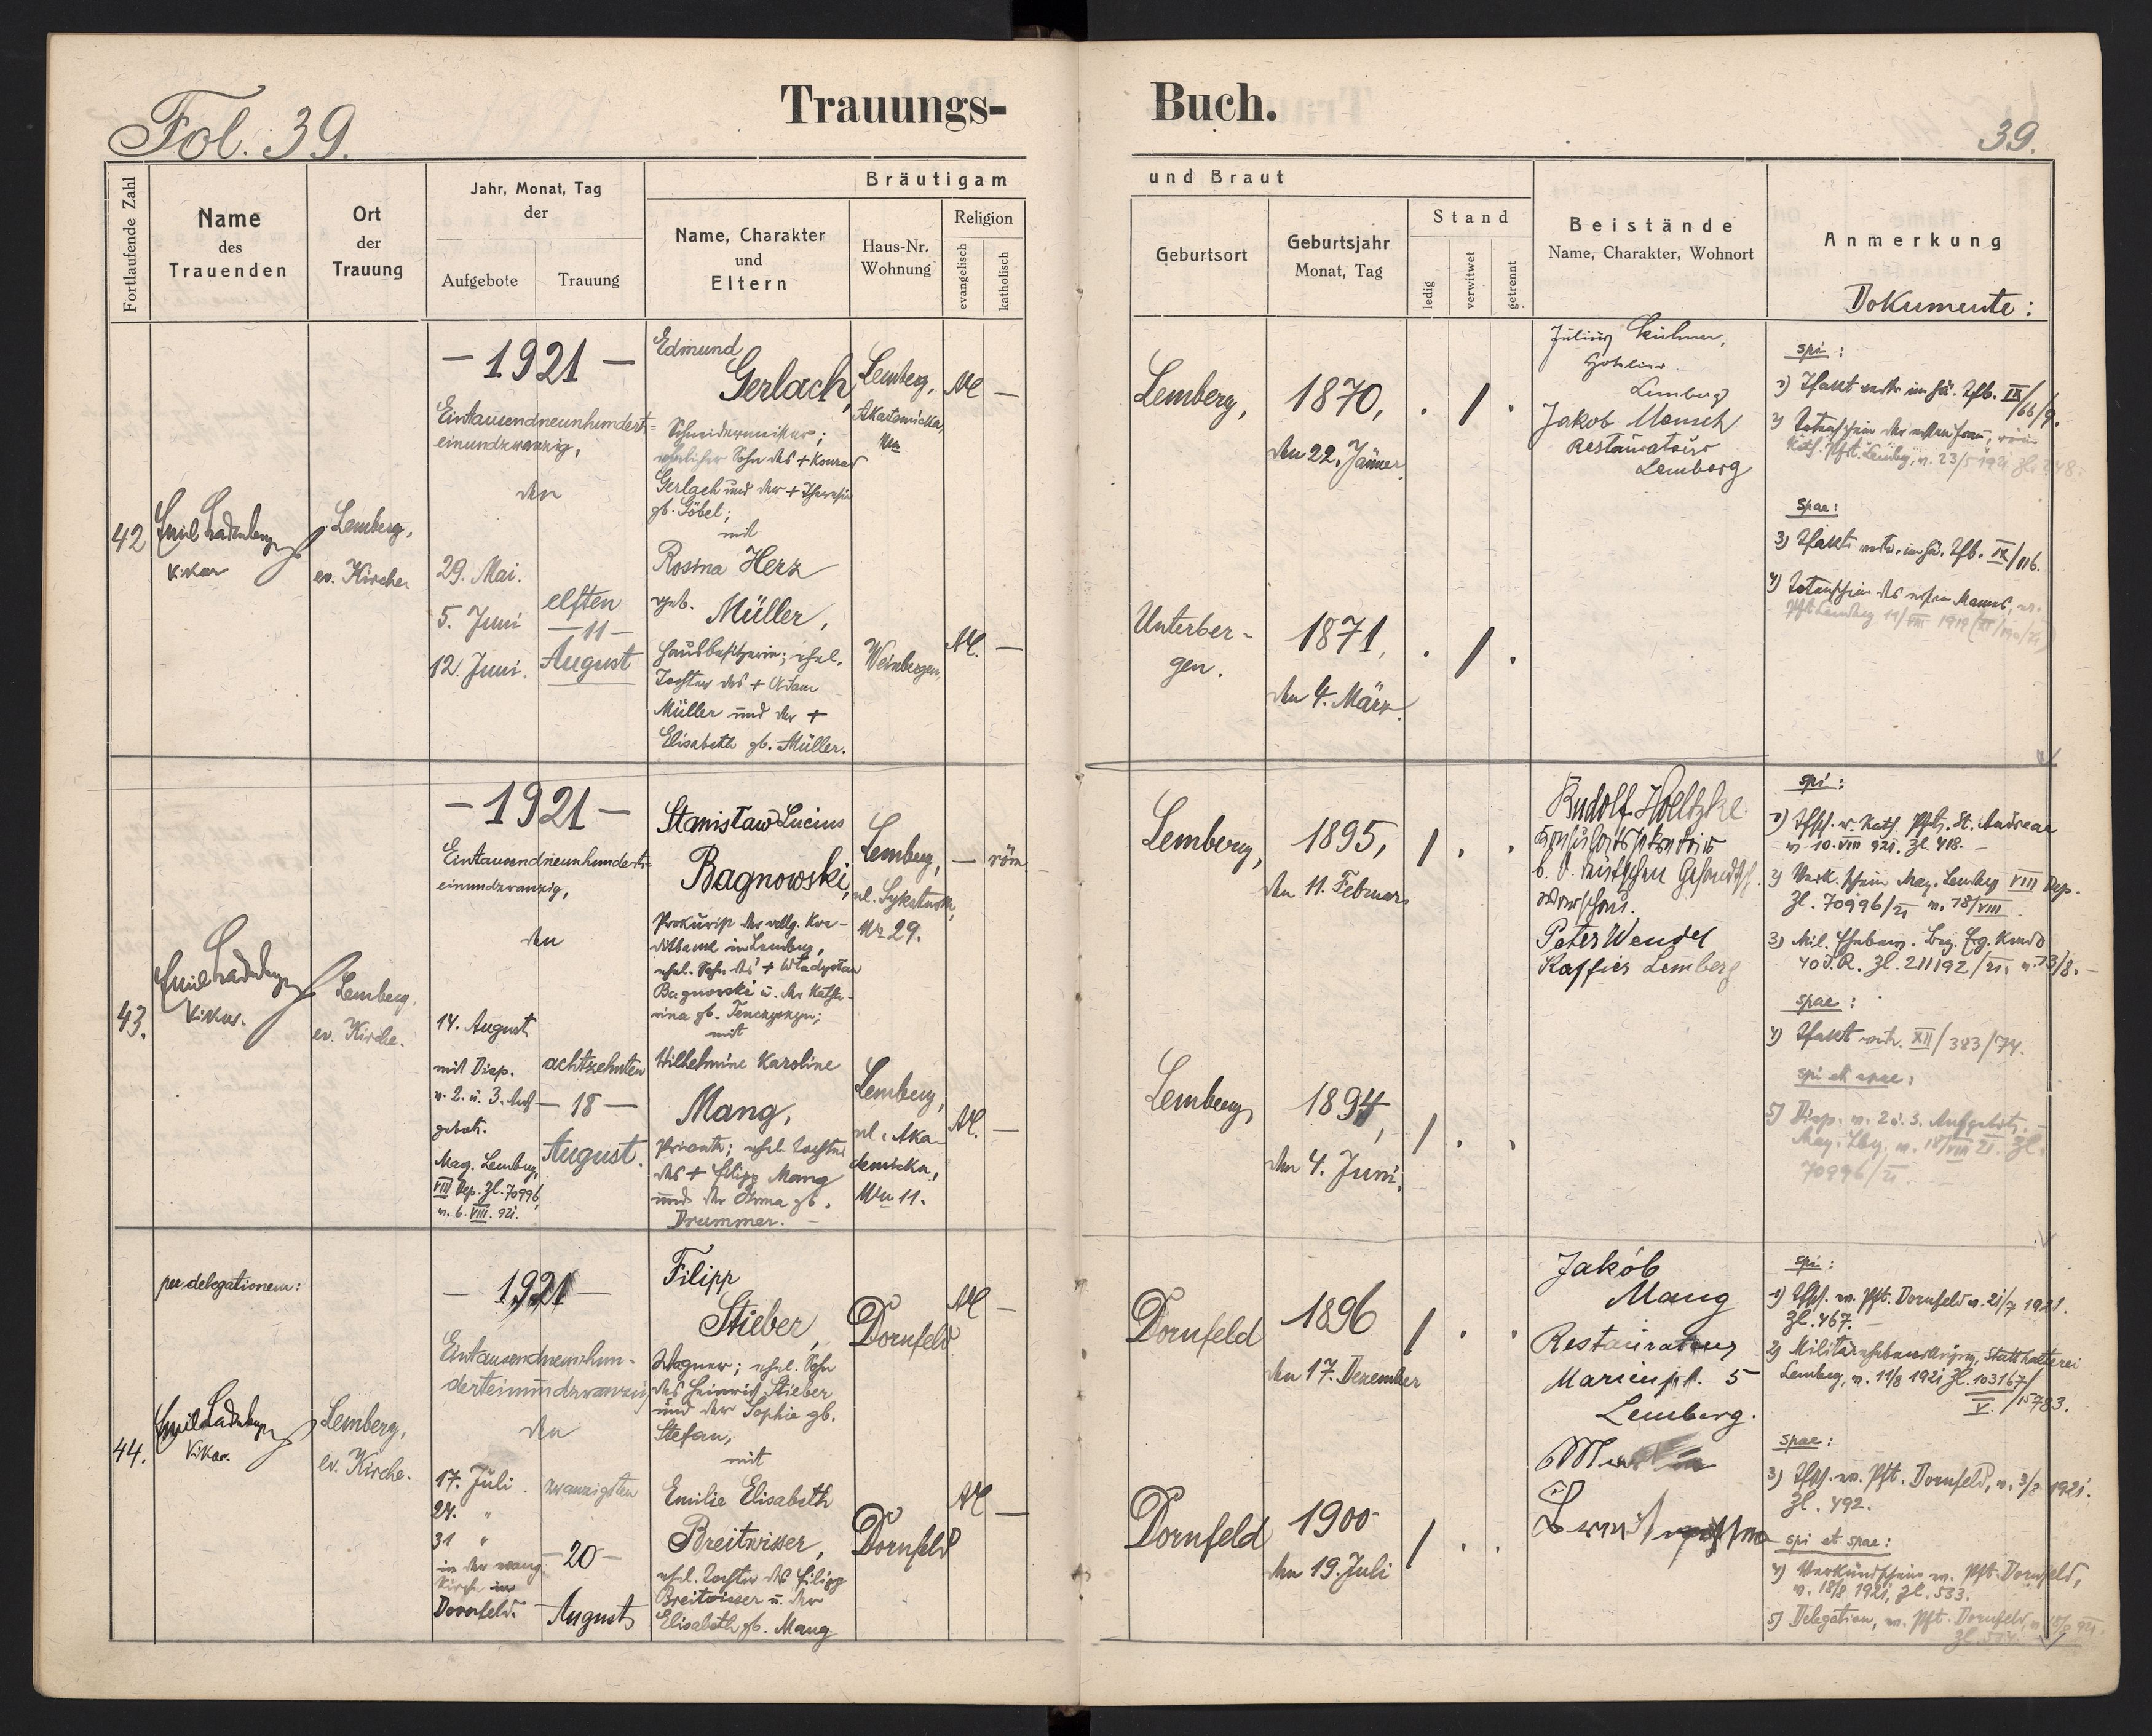 Fol. 39.
Trauungs-
Fortlaufende Zahl
Name
des
Trauenden
Ort
der
Trauung
Jahr, Monat, Tag
der
Aufgebote
Trauung
Bräutigam
Name, Charakter
und
Eltern
Haus-Nr.
Wohnung
Religion
evangelisch
katholisch
42
Emil Ladenberger
Vikar
Lemberg,
ev. Kirche.
— 1921 —
Eintausendneunhundert-
einundzwanzig,
den
29. Mai.
5. Juni
12. Juni.
elften
— 11 —
August
Edmund
Gerlach,
Schneidermeister;
ehelicher Sohn des + Konrad
Gerlach und der + Theresia
gb. Göbel;
mit
Rosina Herz
geb. Müller,
Hausbesitzerin; ehel.
Tochter des + Adam
Müller und der +
Elisabeth gb. Müller.
Lemberg,
Akademicka,
AC —
Weinbergen,
AC. —
43.
Emil Ladenberger
Vikar.
Lemberg,
ev. Kirche.
— 1921 —
Eintausendneunhundert-
einundzwanzig,
den
14. August
mit Disp.
v. 2. u. 3. Auf-
gebot.
Mag. Lemberg,
VIII Dep. Zl. 70996,
v. 6. VIII. 921.
achtzehnten
— 18 —
August.
Stanisław Lucius
Bagnowski,
Prokurist der allg. Kre-
ditbank in Lemberg,
ehel. Sohn des + Władysław
Bagnowski u. der Katha-
rina gb.
mit
Wilhelmine Karoline
Mang,
Private; ehel. Tochter
des + Filipp Mang
und der Anna gb.
Drummer. —
Lemberg,
ul. Sykstuska,
Nr 29.
— röm.
Lemberg,
ul. Aka-
demicka,
Nr 11.
AC. —
44.
per delegationem:
Emil Ladenberger
Vikar.
Lemberg,
ev. Kirche.
— 1921 —
Eintausendneunhun-
derteinundzwanzig
den
17. Juli
24. "
31 "
in der evang.
Kirche in
Dornfeld.
zwanzigsten
— 20 —
August
Filipp
Stieber,
Wagner; ehel. Sohn
des Heinrich Stieber
und der Sophie gb.
Stefan,
mit
Emilie Elisabeth
Breitwieser,
ehel. Tochter des Filipp
Breitwieser u. der
Elisabeth gb. Mang
Dornfeld.
AC —
Dornfeld
AC —
Buch.
39.
und Braut
Geburtsort
Geburtsjahr
Monat, Tag
Stand
ledig
verwitwet
getrennt
Beistände
Name, Charakter, Wohnort
Anmerkung
Dokumente:
Lemberg,
1870,
den 22. Jänner
. / .
Unterber-
gen.
1871,
den 4. März.
. / .
Julius Kühner,
Lemberg
Jakob Mensch
Restaurateur
Lemberg
spi:
1) Tfakt
2) Totenschein der ersten Frau, röm
kath. Pfrt. Lemberg, v. 23/5 1921
spae:
3) Tfakt
4) Totenschein des ersten Mannes,
Lemberg,
1895,
den 11. Februar
/ . .
Lemberg,
1894,
den 4. Juni.
/ . .
Rudolf Holtzke
Konsulatssekretär
b. d. deutschen Gesandtsch.
Warschau.
Peter Wendel
Kassier Lemberg
spi:
1) Tfsch. v. kath. Pfts. St. Andreae
v. 10. VIII 921. Zl. 418. —
2) Verk. schein Mag. Lemberg VIII Dep.
Zl. 70996/21 v. 18/VIII.
3) Mil.
40 J.R. Zl. 211192/21.
spae:
4) Tfakt XII/383/74.
spi et spae:
5) Disp. v. 2 u. 3. Aufgebote.
Mag. Lbg. v. 18/VIII 21. Zl.
70996/21. —
Dornfeld
1896
den 17. Dezember
/ . .
Dornfeld
1900
den 19. Juli
/ . .
Jakób
Mang
Restaurateur
Marienpl. 5
Lemberg.
spi:
1) Tfsch. ev. Pft. Dornfeld v. 21/7 1921.
Zl. 467. —
2) Militärehebewilligung, Statthalterei
Lemberg, v. 11/8 1921 Zl. 103167/
V. /15783.
spae:
3) Tfsch. ev. Pft. Dornfeld, v. 3/8 1921.
Zl. 492.
spi et spae:
4) Verkündschein ev. Pft. Dornfeld,
v. 18/8 1921, Zl. 533.
5) Delegation, ev. Pft. Dornfeld, v. 18/8 921.
Zl. 534.